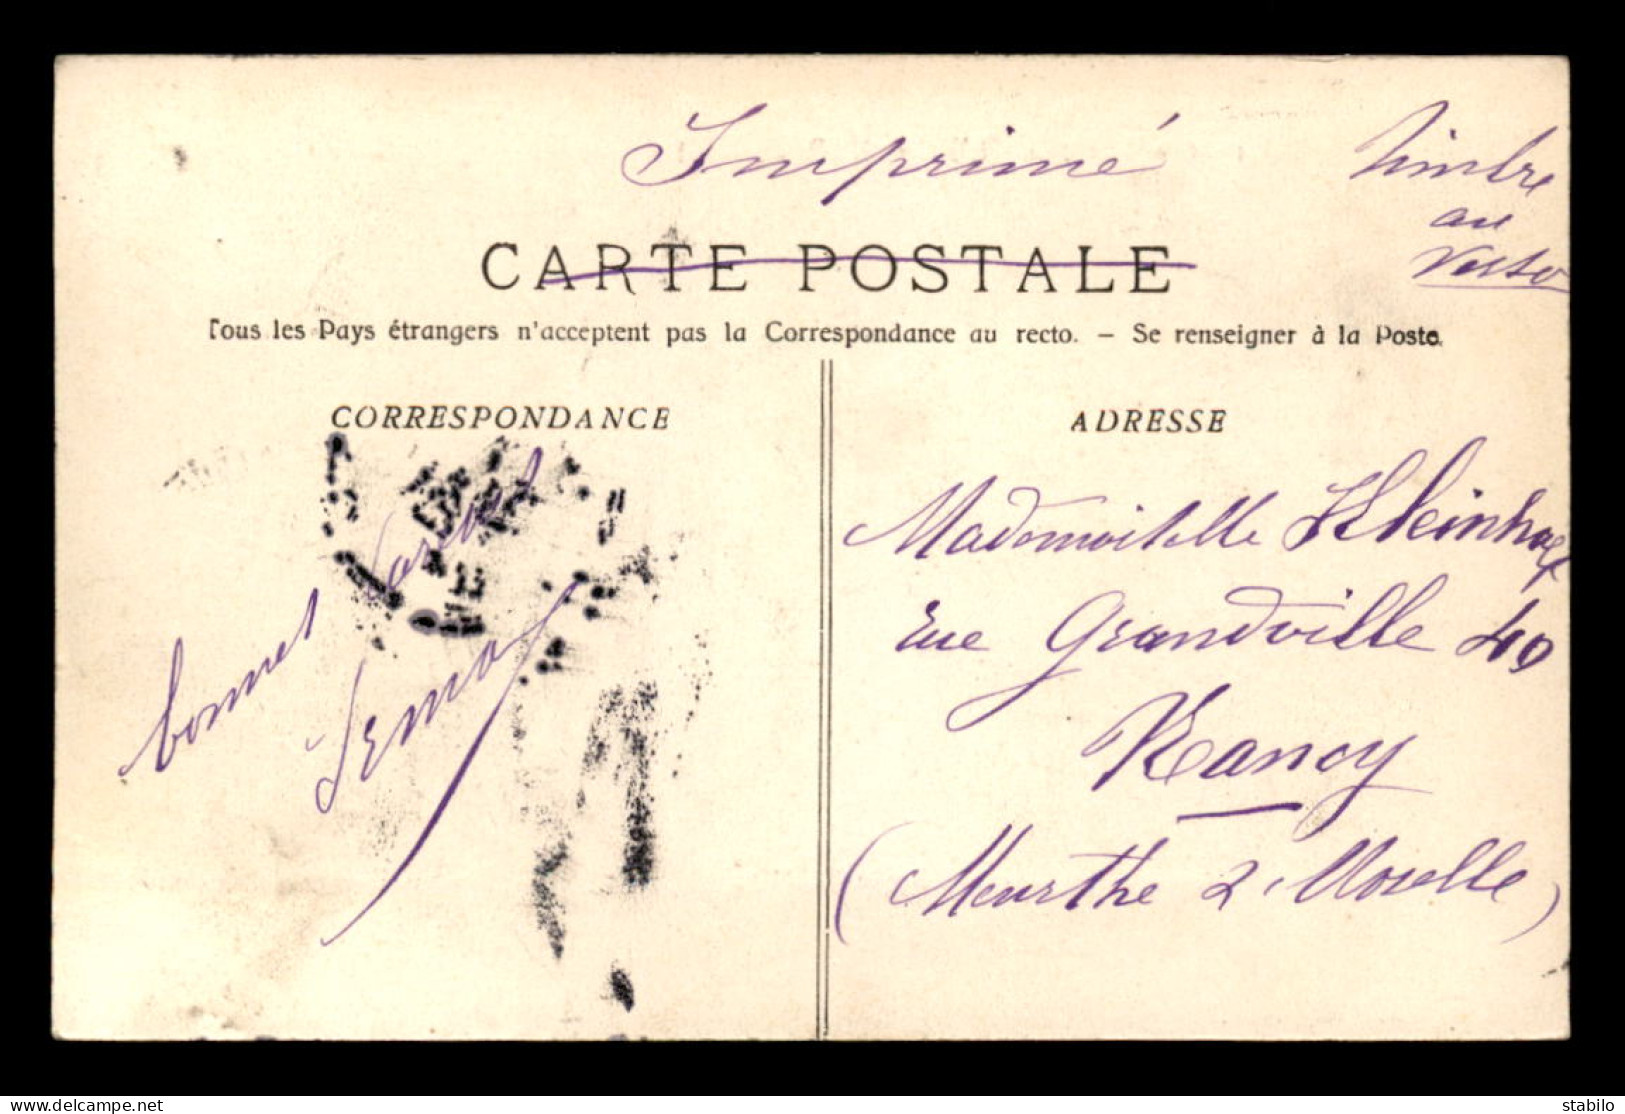 Imprimé
Timbre
au
Verso
CARTE POSTALE
Tous les Pays étrangers n'acceptent pas la Correspondance au recto. — Se renseigner à la Poste.
CORRESPONDANCE
bonnes
ADRESSE
Mademoiselle
rue Grandville 49
Nancy
(Meurthe & Moselle)
www.delcampe.net
stabilo